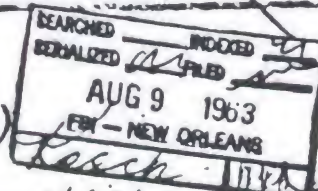 SEARCHED INDEXED
SERIALIZED FILED
AUG 9 1963
FBI — NEW ORLEANS